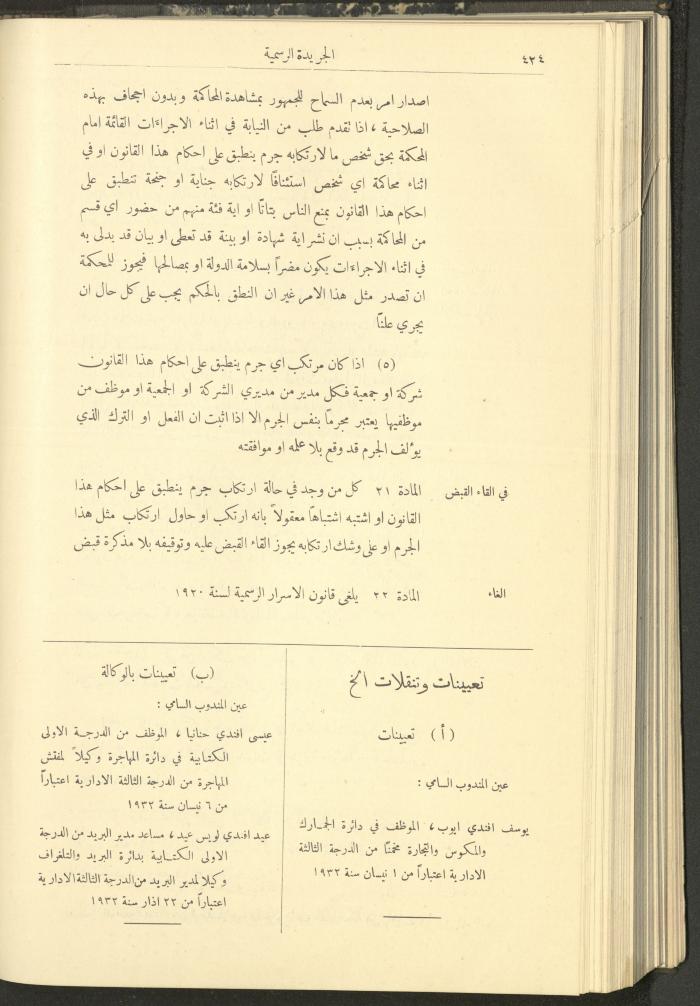 ٤٢٤
الجريدة الرسمية
اصدار امر بعدم السماح للجمهور بمشاهدة المحاكمة وبدون اجحاف بهذه
الصلاحية ، اذا تقدم طلب من النيابة في اثناء الاجراءات القائمة امام
المحكمة بحق شخص ما لارتكابه جرم ينطبق على احكام هذا القانون او في
اثناء محاكمة اي شخص استئنافاً لارتكابه جناية او جنحة تنطبق على
احكام هذا القانون بمنع الناس بتاتاً او اية فئة منهم من حضور اي قسم
من المحاكمة بسبب ان نشر اية شهادة او بينة قد تعطى او بيان قد يدلى به
في اثناء الاجراءات يكون مضراً بسلامة الدولة او بمصالحها فيجوز للمحكمة
ان تصدر مثل هذا الامر غير ان النطق بالحكم يجب على كل حال ان
يجري علناً
(٥) اذا كان مرتكب اي جرم ينطبق على احكام هذا القانون
شركة او جمعية فكل مدير من مديري الشركة او الجمعية او موظف من
موظفيها يعتبر مجرماً بنفس الجرم الا اذا اثبت ان الفعل او الترك الذي
يؤلف الجرم قد وقع بلا علمه او موافقته
في القاء القبض
المادة ٢١ كل من وجد في حالة ارتكاب جرم ينطبق على احكام هذا
القانون او اشتبه اشتباهاً معقولاً بانه ارتكب او حاول ارتكاب مثل هذا
الجرم او على وشك ارتكابه يجوز القاء القبض عليه وتوقيفه بلا مذكرة قبض
الغاء
المادة ٢٢ يلغى قانون الاسرار الرسمية لسنة ١٩٢٠
تعيينات وتنقلات الخ
(أ) تعيينات
عين المندوب السامي :
يوسف افندي ايوب ، الموظف في دائرة الجمارك
والمكوس والتجارة مخمناً من الدرجة الثالثة
الادارية اعتباراً من ١ نيسان سنة ١٩٣٢
(ب) تعيينات بالوكالة
عين المندوب السامي :
عيسى افندي حنانيا ، الموظف من الدرجة الاولى
الكتابية في دائرة المهاجرة وكيلاً لمفتش
المهاجرة من الدرجة الثالثة الادارية اعتباراً
من ٦ نيسان سنة ١٩٣٢
عيد افندي لويس عيد ، مساعد مدير البريد من الدرجة
الاولى الكتابية بدائرة البريد والتلغراف
وكيلا لمدير البريد من الدرجة الثالثة الادارية
اعتباراً من ٢٢ اذار سنة ١٩٣٢